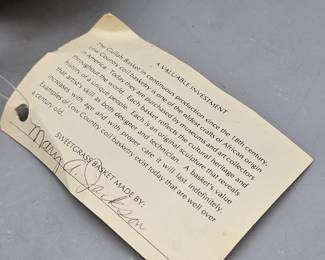 A VALUABLE INVESTMENT
The Gullah Basket in continuous production since the 18th century,
Low Country coil basketry is one of the oldest crafts of African origin
in America. Today they are purchased by museums and art collectors
throughout the world. Each basket reflects the cultural heritage and
history of a unique people. Each is an original sculpture that reveals
that artist's skill as both designer and technician. A basket's value
increases with age and with proper care it will last indefinitely.
Examples of Low Country coil basketry exist today that are well over
a century old.
SWEETGRASS BASKET MADE BY:
Mary A. Jackson